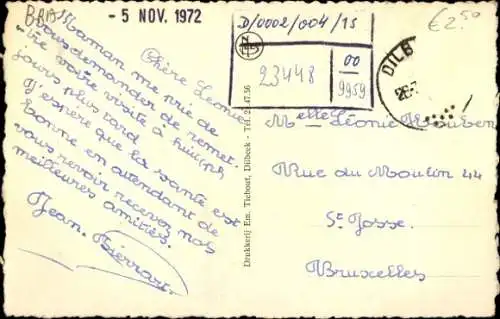 BRASS
- 5 NOV. 1972
D/0002/004/15
00
23448
9959
€2.50
DILB
Chère Léonie
Maman me prie de
vous demander de remet-
tre votre visite à huit
jours plus tard.
J'espère que la santé est
bonne en attendant de
vous revoir recevez nos
meilleures amitiés.
Jean. Pierrart
Drukkerij Em. Tiebout, Dilbeek - Tel. 21.47.56
Melle Léonie Houben
Rue du Moulin 44
St Josse.
Bruxelles